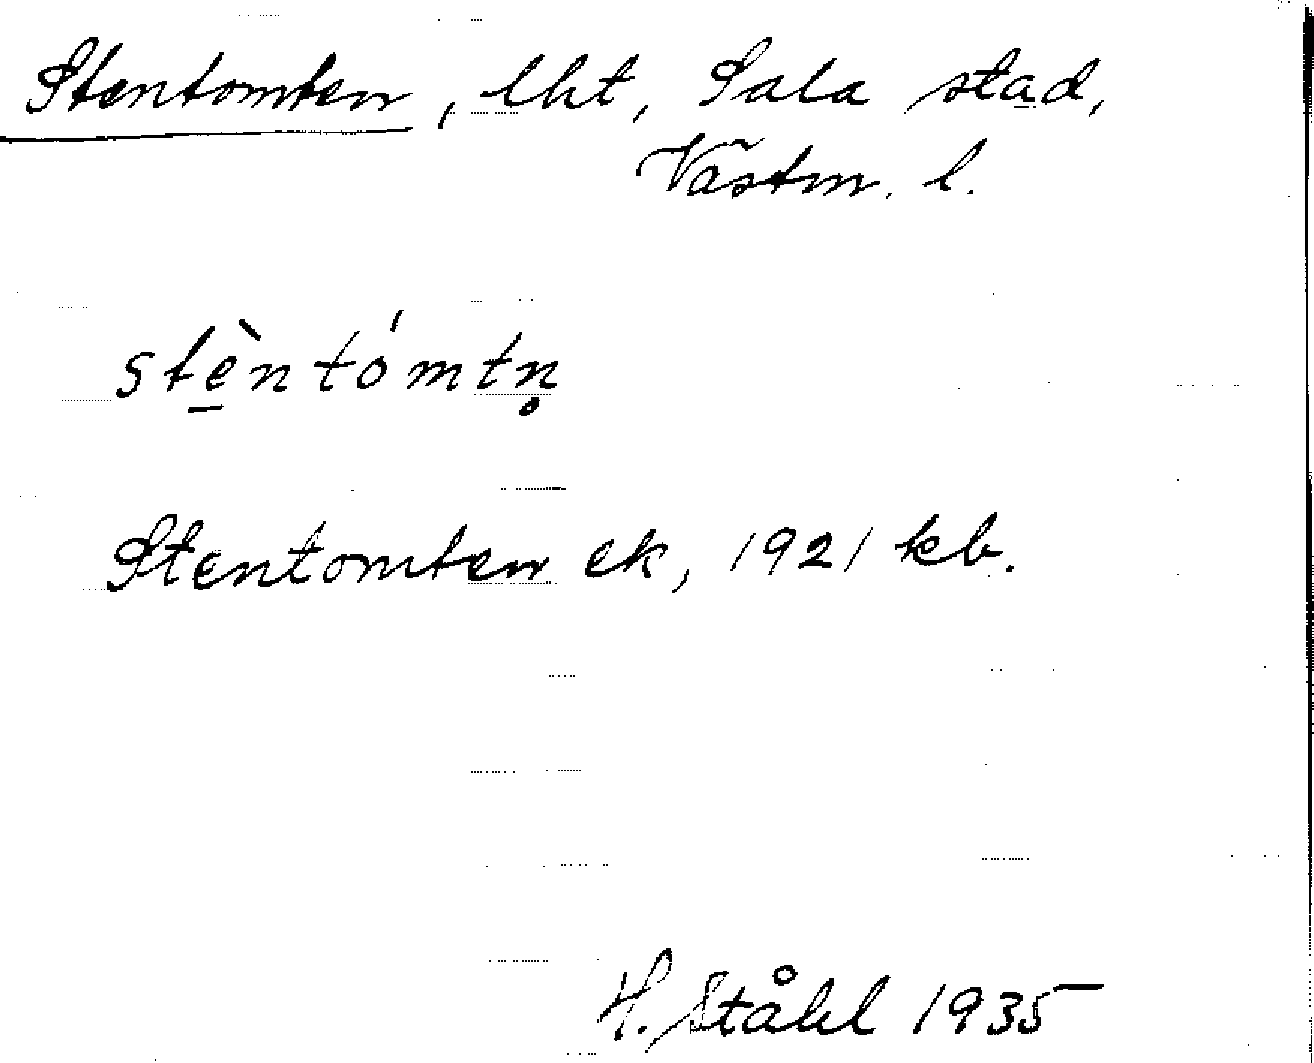 Stentomten, lht, Sala stad,
Västm. l.
stè̱ntómtn̥
Stentomten ek, 1921 kb.
H. Ståhl 1935